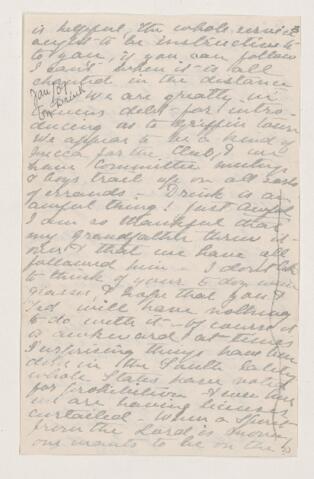 is helpful. The whole service
ought to be instructive
to you, if you can follow
I can't when it is all
chanted in the distance
Jan/07
We are greatly in
debt for intro-
ducing us to Griffin town
We appear to be a kind of
mecca for the Club, I we
have Committee meetings
& boys trail up on all sorts
of errands - Drink is an
awful thing! Just awful
I am so thankful that
my Grandfather threw it
over & that we have all
followed him - I don't like
to think of your 6 doz wine
glasses, I hope that you &
Ted will have nothing
to do with it - of course it
is awkward at times
Surprising things have been
done in the South lately
whole States have voted
for prohibition & even here
we are having licenses
curtailed - When a Spirit
from the Lord is moving
one wants to be on the